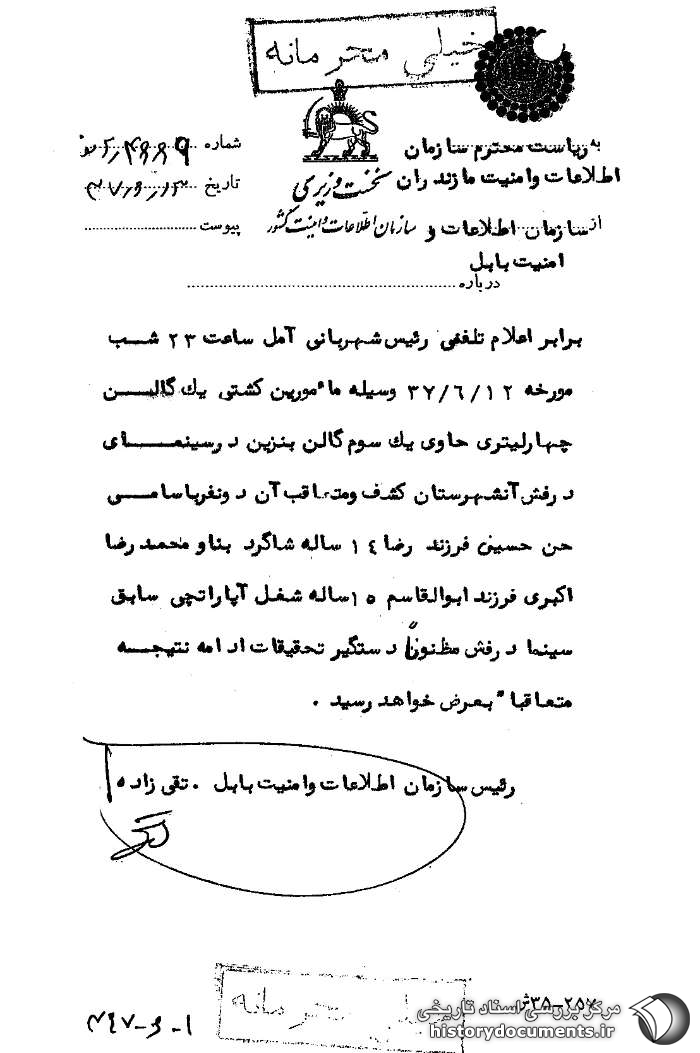 خیلی محرمانه
به ریاست محترم سازمان
اطلاعات وامنیت مازندران
نخست وزیری
سازمان اطلاعات و امنیت کشور
شماره
تاریخ ۳۷/۶/۱۳
پیوست
از سازمان اطلاعات و
امنیت بابل
درباره
برابر اعلام تلفنی رئیس شهربانی آمل ساعت ۲۳ شب
مورخه ۳۷/۶/۱۲ وسیله مأمورین کشتی یك گالن
چهارلیتری حاوی یك سوم گالن بنزین درسینمای
درفش آنشهرستان کشف ومتعاقب آن دونفرباسامی
حن حسینی فرزند رضا ۱٤ ساله شاگرد بنا و محمدرضا
اکبری فرزند ابوالقاسم ۱۵ساله شغل آپاراتچی سابق
سینما درفش مظنوناً دستگیر تحقیقات ادامه نتیجه
متعاقبا" بعرض خواهد رسید .
رئیس سازمان اطلاعات وامنیت بابل . تقی زاده
خیلی محرمانه
۳۵-۲۵۷
مرکز بررسی اسناد تاریخی
historydocuments.ir